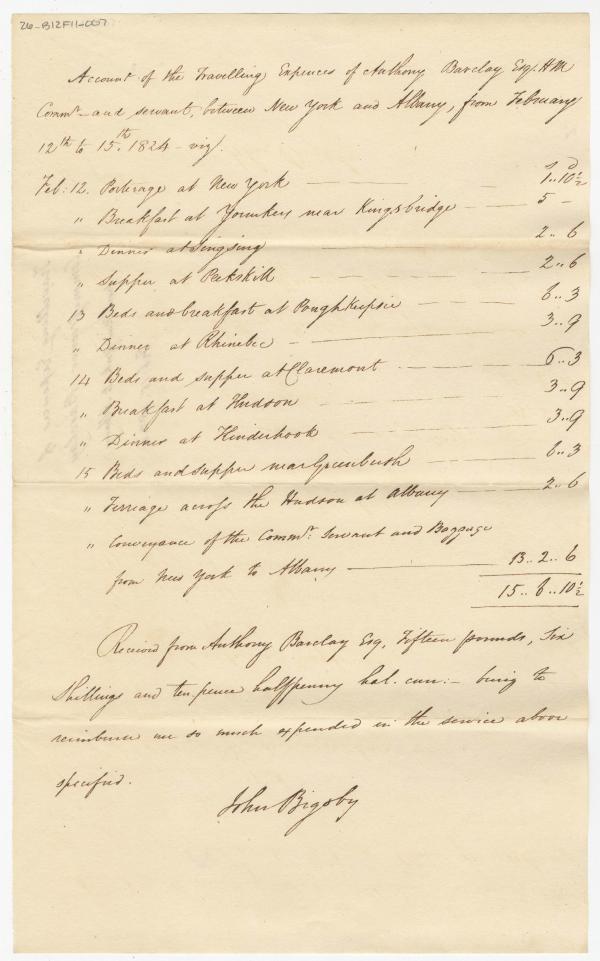 26-B12F11-007
Account of the Travelling Expences of Anthony Barclay Esq. HM
Commr. and servant, between New York and Albany, from February
12th to 15th. 1824 - viz.
s d
Feb: 12. Porterage at New York 1..10½
" Breakfast at Yournkers near Kingsbridge 5 -
" Dinner at Singsing 2.. 6
" Supper at Peekskill 2.. 6
13 Beds and breakfast at Poughkeepsie 6.. 3
" Dinner at Rhinebec 3.. 9
14 Beds and supper at Claremont 6.. 3
" Breakfast at Hudson 3.. 9
" Dinner at Kinderhook 3.. 9
15 Beds and supper near Greenbush 6.. 3
" Ferriage across the Hudson at Albany 2.. 6
" Conveyance of the Commr. Servant and Baggage
from New York to Albany 13.. 2.. 6
15.. 6.. 10½
Received from Anthony Barclay Esq. Fifteen pounds, Six
Shillings and ten pence halfpenny hal. curr: - being to
reimburse me so much expended in the service above
specified.
John Bigsby